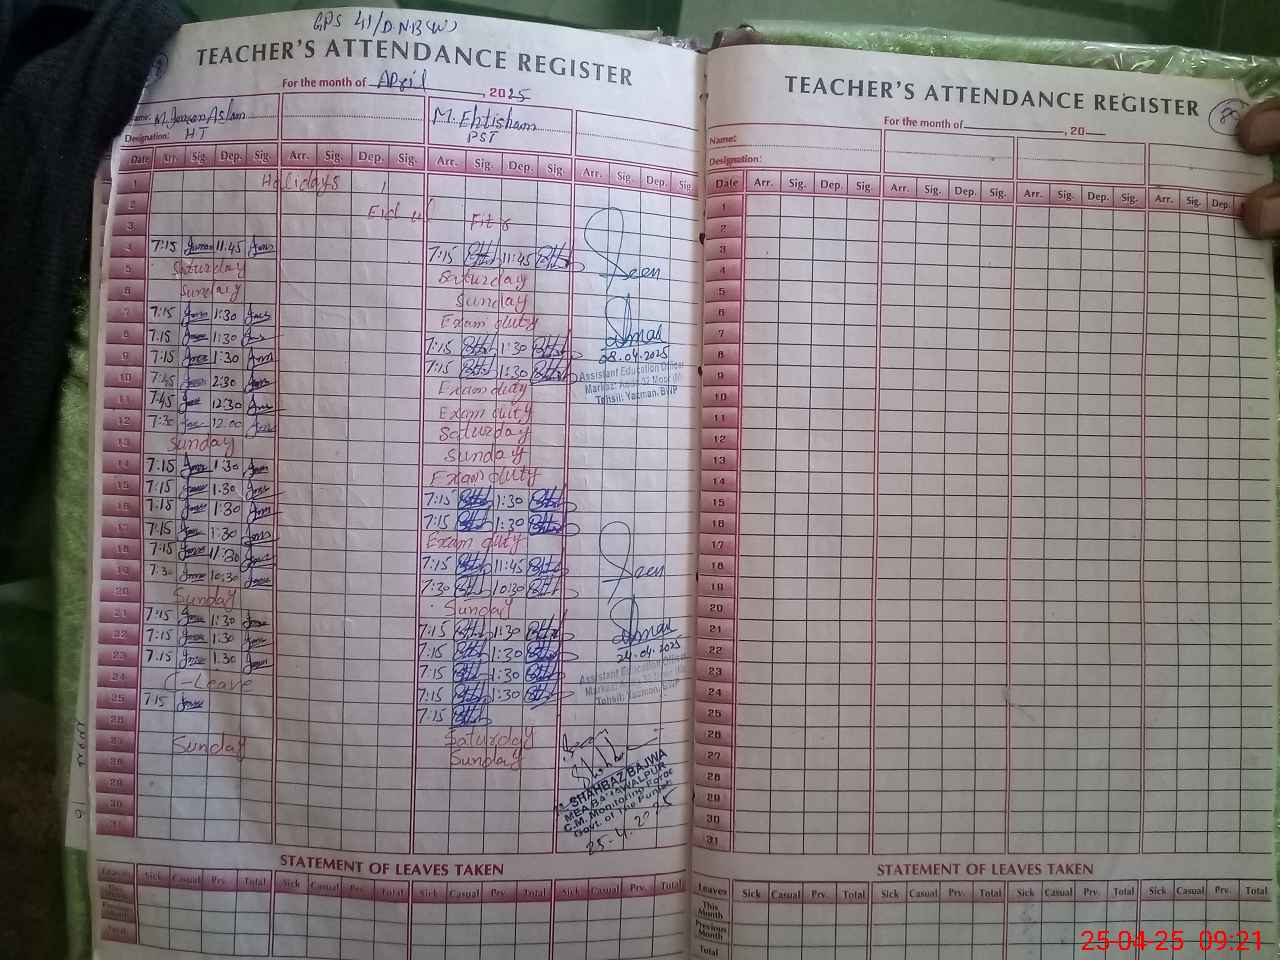 GPS 41/D.N.B(W)
TEACHER'S ATTENDANCE REGISTER
For the month of April, 2025
Name: M. Aslam M. Ehtisham
Designation: HT PST
Date Arr. Sig. Dep. Sig Arr. Sig. Dep. Sig. Arr. Sig. Dep. Sig Arr. Sig. Dep. Sig.
1 Holidays
2 Eid ul
3 Fitr
4 7:15 11:45 7:15 11:45
5 Saturday Saturday
6 Sunday Sunday
7 7:15 1:30 Exam duty
8 7:15 1:30 7:15 1:30
9 7:15 1:30 7:15 1:30
10 7:45 2:30 Exam duty
11 7:45 12:30 Exam duty
12 7:30 12:00 Saturday
13 Sunday Sunday
14 7:15 1:30 Exam duty
15 7:15 1:30 7:15 1:30
16 7:15 1:30 7:15 1:30
17 7:15 1:30 Exam duty
18 7:15 11:30 7:15 11:45
19 7:30 10:30 7:30 10:30
20 Sunday Sunday
21 7:15 1:30 7:15 1:30
22 7:15 1:30 7:15 1:30
23 7:15 1:30 7:15 1:30
24 C-Leave 7:15 1:30
25 7:15 7:15
26 Saturday
27 Sunday Sunday
28
29
30
31
Seen
28.04.2025
Assistant Education Officer
Tehsil: Yazman, BWP
Seen
24.04.2025
Assistant Education Officer
Tehsil: Yazman, BWP
SHAHBAZ BAJWA
MEA BAHAWALPUR
C.M. Monitoring Force
Govt. of The Punjab
25-4-2025
STATEMENT OF LEAVES TAKEN
Leaves Sick Casual Prv. Total Sick Casual Prv. Total Sick Casual Prv. Total Sick Casual Prv. Total
This Month
Previous Month
Total
TEACHER'S ATTENDANCE REGISTER
80
For the month of , 20
Name:
Designation:
Date Arr. Sig. Dep. Sig. Arr. Sig. Dep. Sig. Arr. Sig. Dep. Sig. Arr. Sig. Dep.
1
2
3
4
5
6
7
8
9
10
11
12
13
14
15
16
17
18
19
20
21
22
23
24
25
26
27
28
29
30
31
STATEMENT OF LEAVES TAKEN
Leaves Sick Casual Prv. Total Sick Casual Prv. Total Sick Casual Prv. Total Sick Casual Prv. Total
This Month
Previous Month
Total
25-04-25 09:21